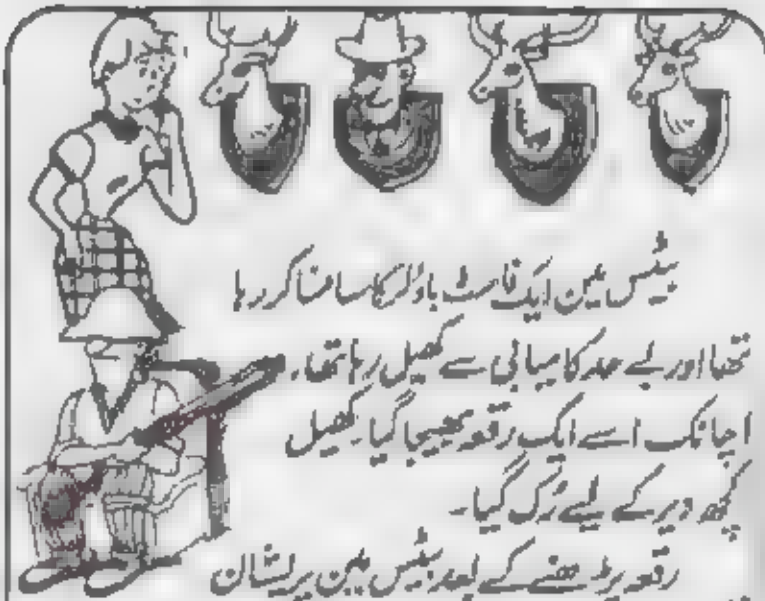 بیٹس مین ایک فاسٹ باؤلر کا سامنا کر رہا
تھا اور بے حد کامیابی سے کھیل رہا تھا۔
اچانک اسے ایک رقعہ بھیجا گیا۔ کھیل
کچھ دیر کے لیے رُک گیا۔
رقعہ پڑھنے کے بعد بیٹس مین پریشان